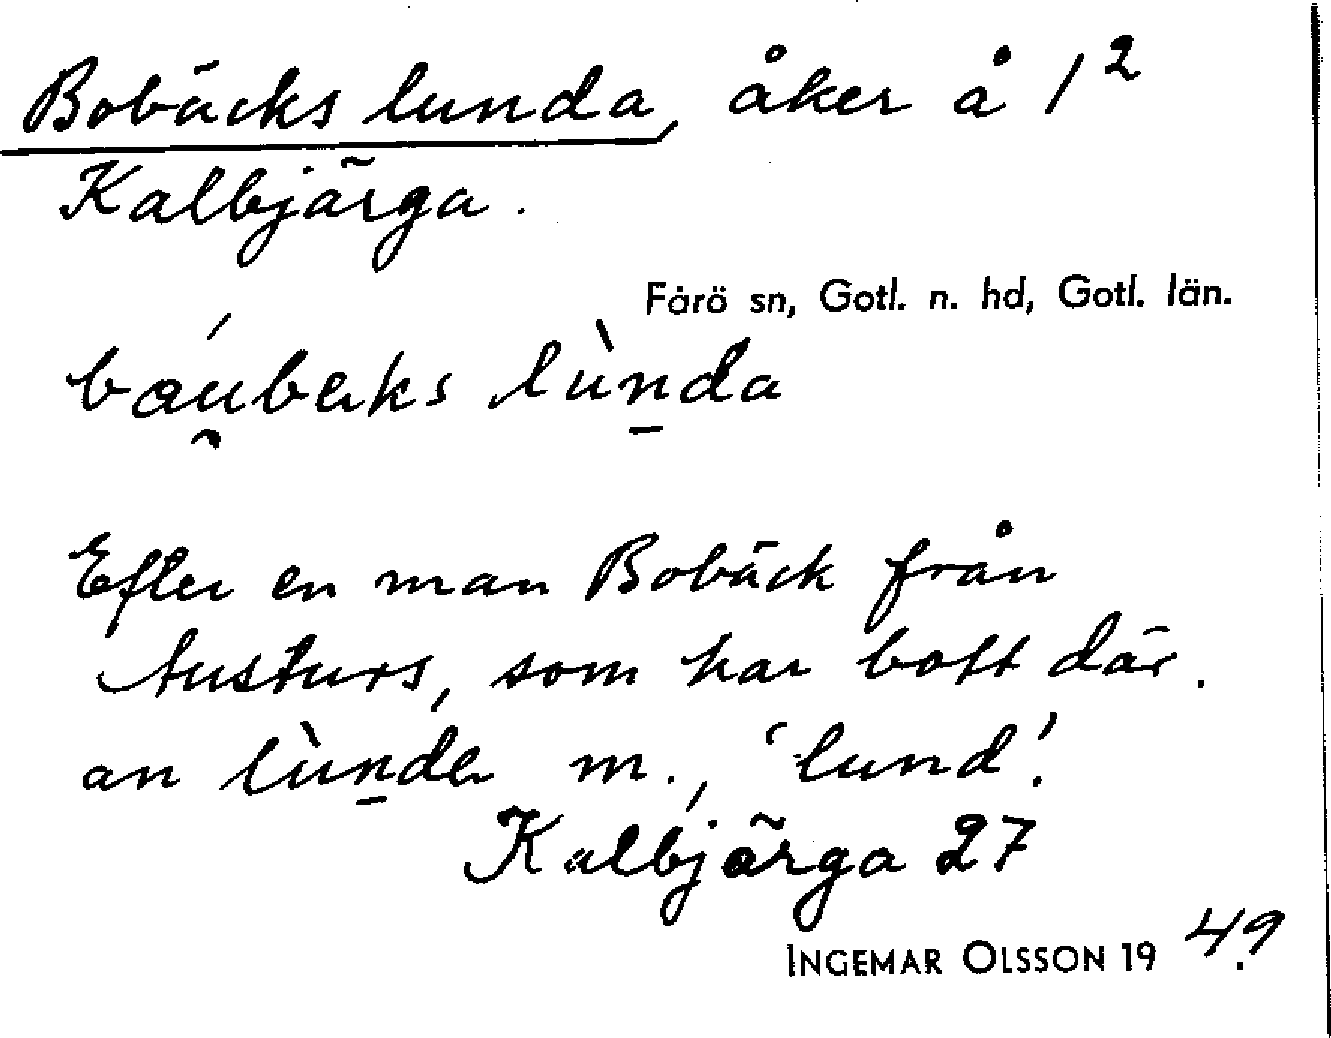 Bobäcks lunda, åker å 1²
Kalbjärga.
Fårö sn, Gotl. n. hd, Gotl. län.
báu̯beks lùn̠da
Efter en man Bobäck från
Austurs, som har bott där.
an lùn̠da m., 'lund'.
Kalbjärga 27
INGEMAR OLSSON 1949.